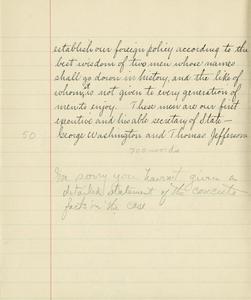 establish our foreign policy according to the
best wisdom of two men whose names
shall go down in history, and the like of
whom, is not given to every generation of
men to enjoy. These men are our first
executive and his able secretary of state—
50 George Washington and Thomas Jefferson
700 words
I'm sorry you haven't given a
detailed statement of the concrete
facts in the case